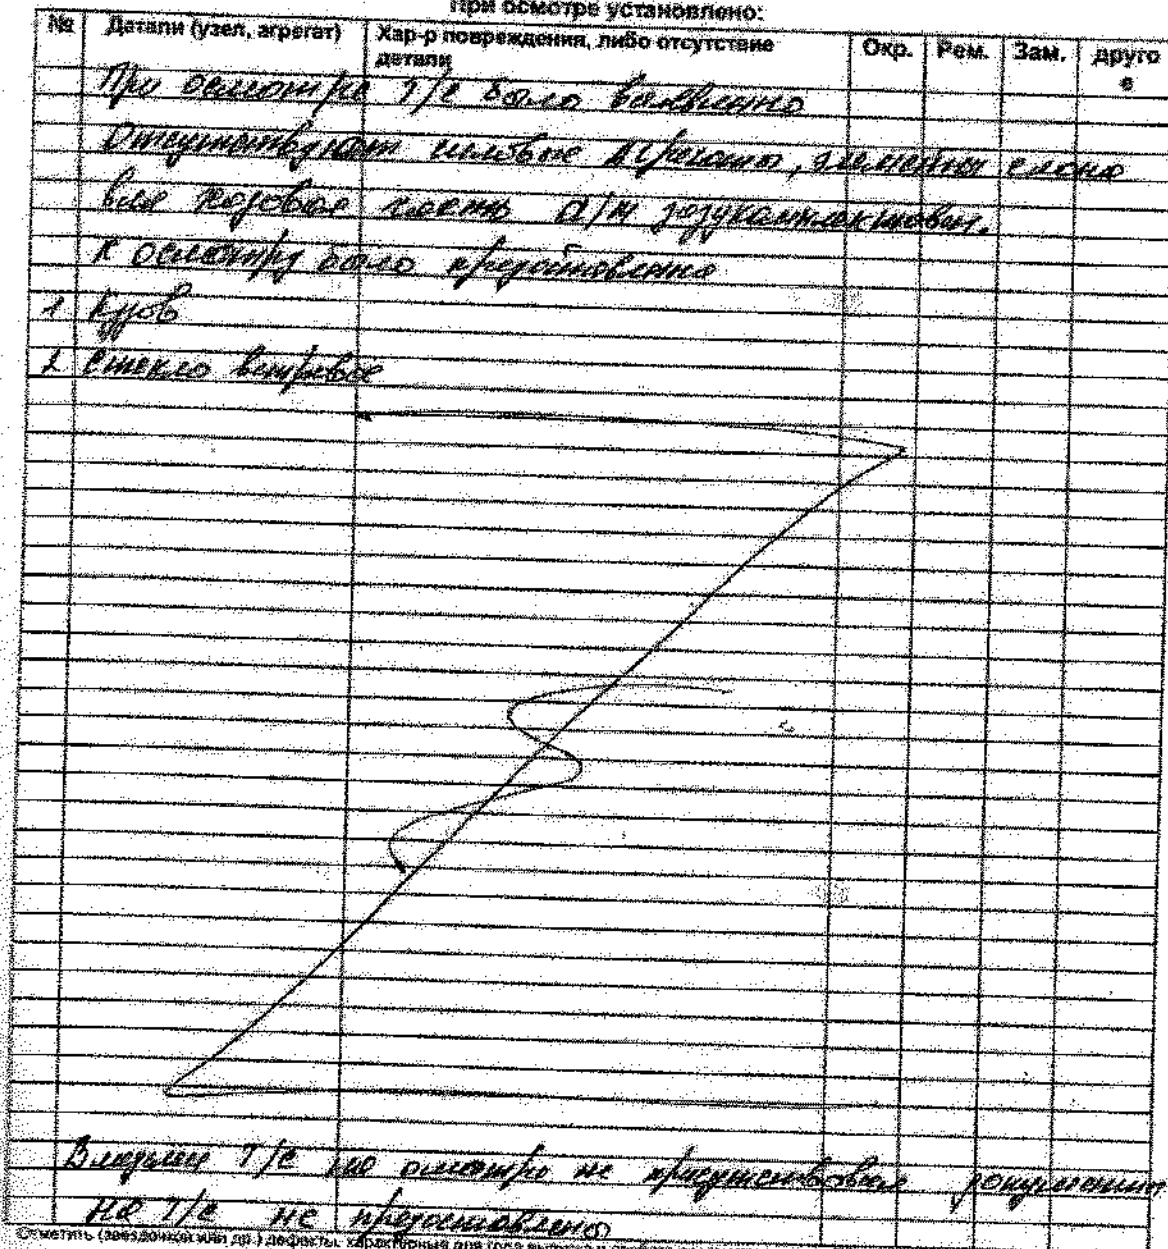 При осмотре установлено:
№ Датали (узел, агрегат) Хар-р повреждения, либо отсутствие детали Окр. Рем. Зам. другое
При осмотре Т/С было выявленно
Отсутствуют силовые агрегаты, элементы салона
вся ходовая часть а/м разукомплектован.
К осмотру было предоставленно
1 Кузов
2 Стекло ветровое
Владелец Т/С на осмотре не присутствовал документы
на Т/С не предоставлено
Отметить (звездочкой или др.) дефекты, характерные для года выпуска